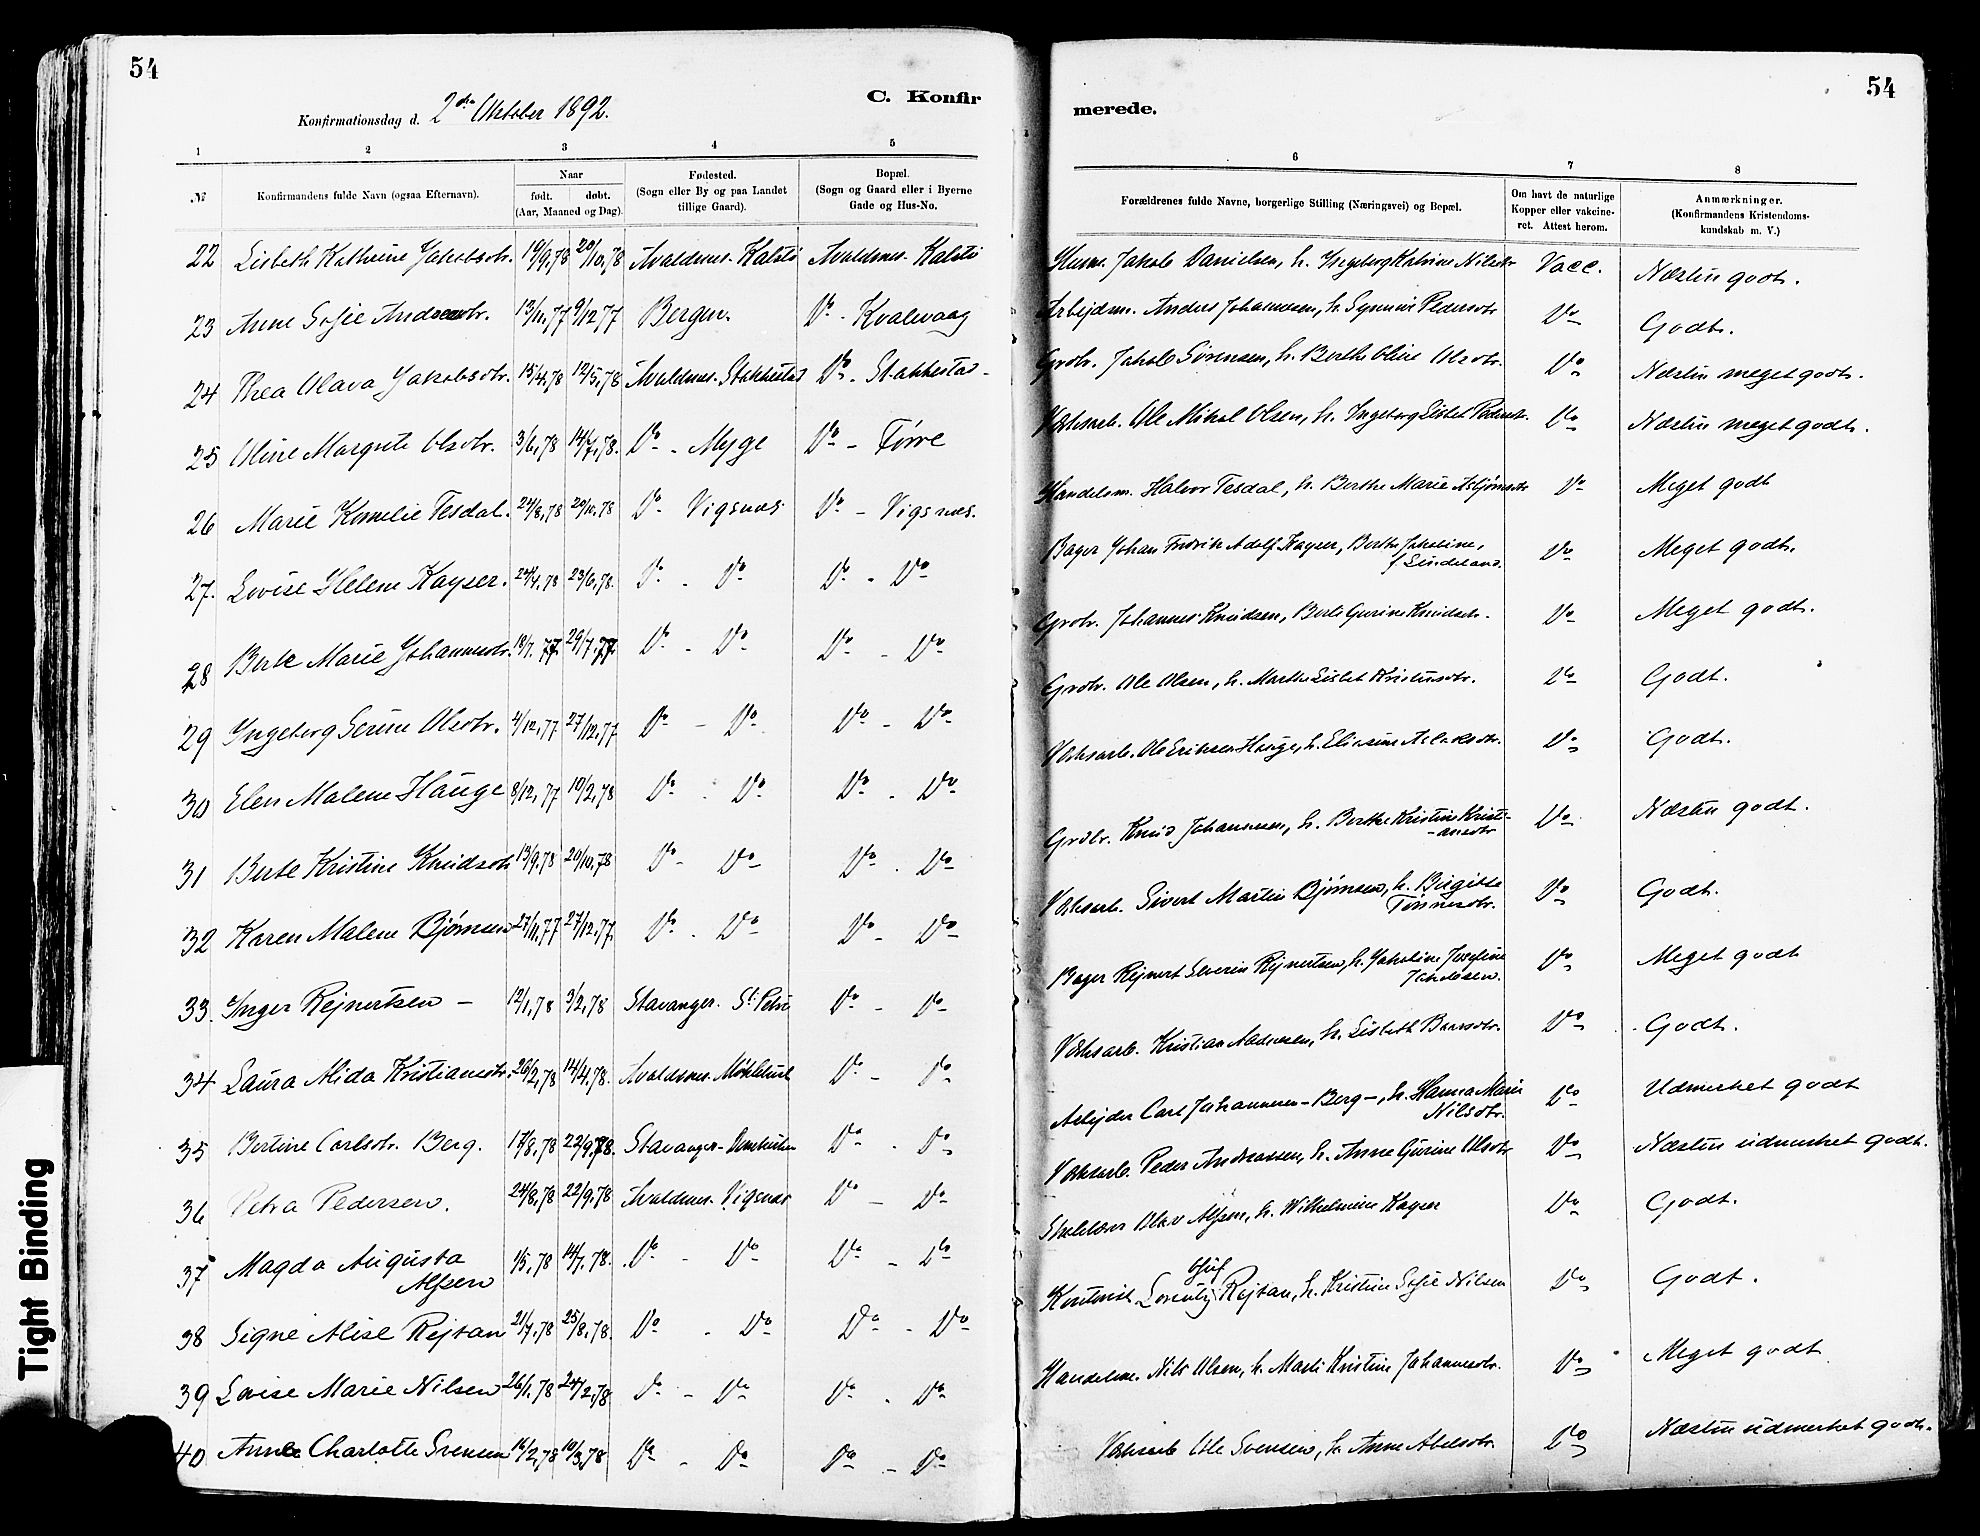 54
Konfirmationsdag d. 2den Oktober 1892.
C. Konfir
1 2 3 4 5
№
Konfirmandens fulde Navn (ogsaa Efternavn).
Naar
født. døbt.
(Aar, Maaned og Dag).
Fødested.
(Sogn eller By og paa Landet
tillige Gaard).
Bopæl.
(Sogn og Gaard eller i Byerne
Gade og Hus-No.
22 Lisbeth Kathrine Jakobsdtr. 19/9,78 20/10,78 Avaldsnes. Kalstö Avaldsnes. Kalstö
23 Anne Sofie Andersdtr. 13/11,77 9/12 77 Bergen. Do - Kvalevaag
24 Thea Olava Jakobsdtr. 15/4,78 12/5,78 Avaldsnes. Stakkestad Do - Stakkestad -
25 Oline Margrete Olsdtr. 3/6,78 14/7,78. Do - Myge Do - Förre
26 Marie Kornelie Tesdal. 24/8,78 20/10,78 Do Vigsnæs Do - Vigsnæs.
27. Lovise Helene Kayser. 24/4,78 23/6,78. Do - Do Do - Do
28 Berte Marie Johannesdtr. 18/7. 77. 29/7.77. Do - Do Do - Do
29 Ingeborg Serine Olsdtr. 4/12,77 27/12,77 Do - Do Do - Do
30 Elen Malene Hauge 8/12,77 10/2,78 Do - Do Do - Do
31 Berte Kristine Knudsdtr 13/9,78 20/10,78 Do - Do Do - Do
32 Karen Malene Bjørnsen 27/11,77 27/12,77. Do - Do Do - Do
33. Inger Rejnertsen - 12/1,78 3/2,78 Stavanger. St. Petri Do - Do
34 Laura Alida Kristiansdtr. 26/2,78 14/4,78. Avaldsnes. Do - Do
35 Bertine Carlsdtr. Berg. 17/8,78 22/9,78. Stavanger- Do - Do
36 Petra Pedersen. 24/8,78 22/9,78 Avaldsnes. Vigsnæs Do - Do
37 Magda Augusta
Alfsen 1/5,78 14/7.78. Do - Do Do - Do
38 Signe Alise Rejtan 21/7,78 25/8,78. Do - Do Do - Do
39 Lovise Marie Nilsen 26/1,78 24/2,78 Do - Do Do - Do
40 Anne Charlotte Svensen 16/2,78 10/3,78 Do - Do Do - Do
54
merede.
6 7 8
Forældrenes fulde Navne, borgerlige Stilling (Næringsvei) og Bopæl.
Om havt de naturlige
Kopper eller vakcine-
ret. Attest herom.
Anmærkninger.
(Konfirmandens Kristendoms-
kundskab m. V.)
Husm. Jakob Danielsen, h. Ingeborg Katrine Nilsdtr Vacc. Næsten godt.
Arbejdsm. Anders Johannesen, h. Synneve Pedersdtr Do Godt.
Grdbr. Jakob Sörensen, h. Berthe Oline Olsdtr. Do Næsten meget godt.
Værksarb. Ole Mikal Olsen, h. Ingeborg Lisbet Pedersdtr. Do Næsten meget godt.
Handelsm. Halvor Tesdal, h. Berthe Marie Asbjörnsdtr Do Meget godt
Bager Johan Fredrik Adolf Kayser, Berthe Jakobine,
f Lindeland. Do Meget godt.
Grdbr. Johannes Knudsen, Berte Gurine Knudsdtr. Do Meget godt.
Grdbr. Ole Olsen, h. Marthe Lisbet Kristensdtr. Do Godt.
Værksarb. Ole Eriksen Hauge, h. Eliasine Aslaksdtr. Do Godt.
Grdbr. Knud Johannesen, h. Berthe Kristine Kristi-
-ansdtr Do Næsten godt.
Værksarb. Sivert Martin Bjørnsen, h. Birgitte
Tönnesdtr. Do Godt.
Bager Rejnert Severin Rejnertsen, h. Jakobine Josefine
Jakobsen. Do Meget godt
Værksarb. Kristian Andersen, h. Lisbeth Do Godt.
Arbejder Carl Johannesen - Berg -, h. Hanna Marie
Nilsdtr. Do Udmerket godt
Værksarb. Peder Andreassen, h. Anne Gurine Olsdtr Do Næsten udmerket godt.
Olav Alfsen, h. Wilhelmine Kayser Do Godt.
Kontorist Lorentz Oluf Rejtan, h. Kristine Sofie Nilsen Do Godt.
Handelsm. Nils Olsen, h. Marte Kristine Johannesdtr. Do Meget godt
Værksarb Ole Svensen, h. Anne Abelsdtr. Do Næsten udmerket godt.
Tight Binding